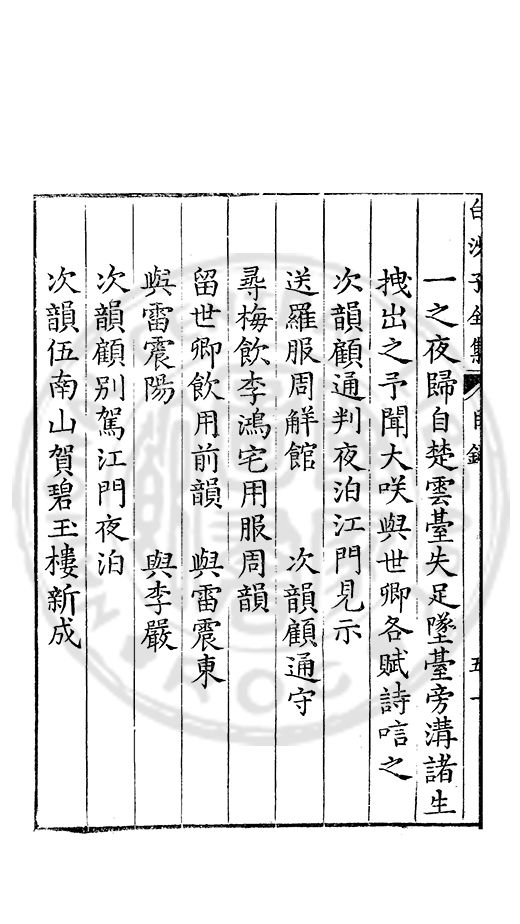 白沙子全集 目錄 五十
一之夜歸自楚雲臺失足墜臺旁溝諸生
拽出之予聞大咲與世卿各賦詩唁之
次韻顧通判夜泊江門見示
送羅服周觧館 次韻顧通守
尋梅飲李鴻宅用服周韻
留世卿飲用前韻 與雷震東
與雷震陽 與李嚴
次韻顧別駕江門夜泊
次韻伍南山賀碧玉樓新成